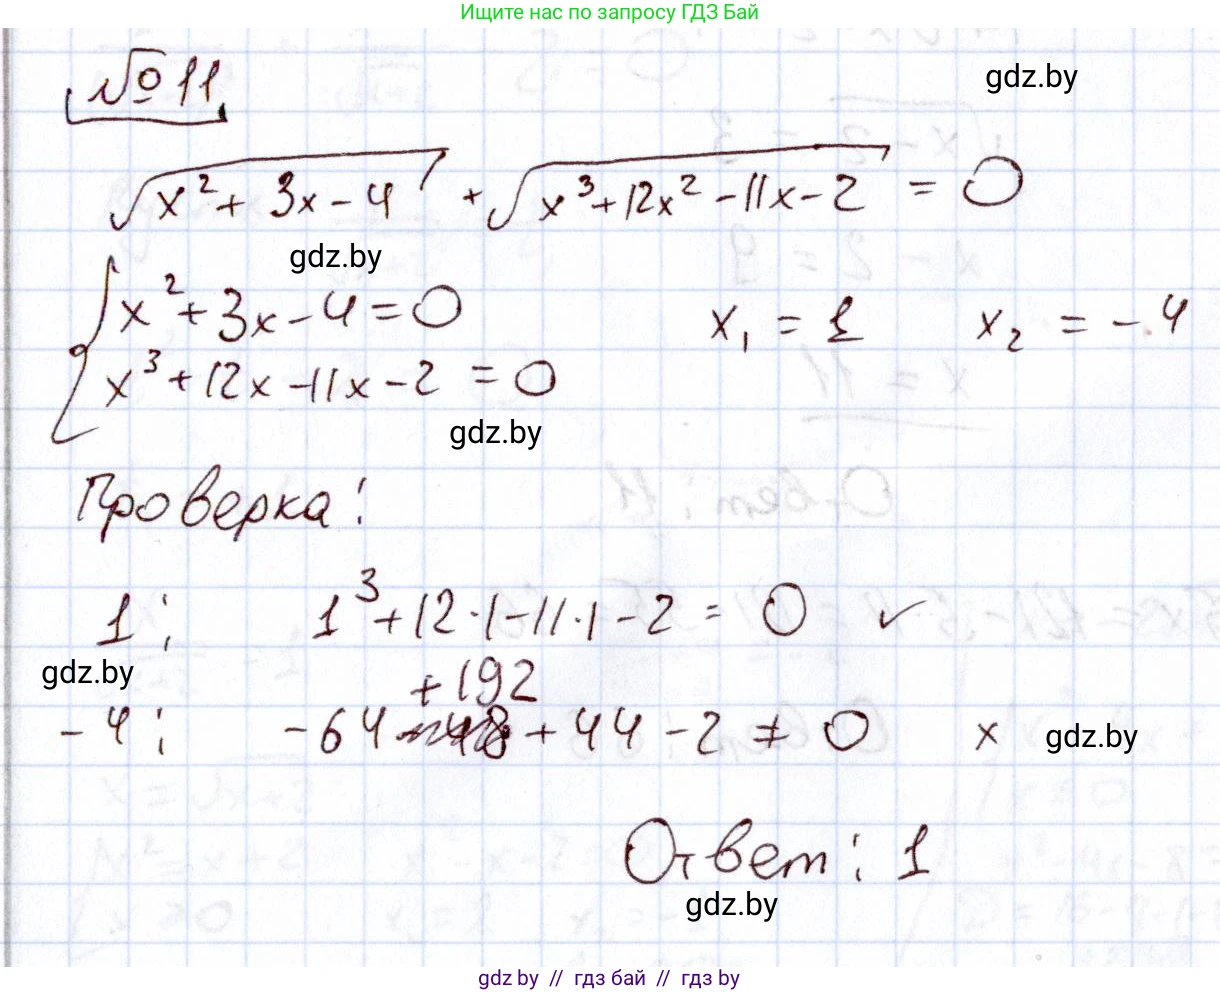 Ищите нас по запросу ГДЗ Бай
№ 11
gdz.by
√(x² + 3x - 4) + √(x³ + 12x² - 11x - 2) = 0
gdz.by
{ x² + 3x - 4 = 0
x₁ = 1 x₂ = -4
x³ + 12x - 11x - 2 = 0
gdz.by
Проверка:
1: 1³ + 12·1 - 11·1 - 2 = 0 ✓
gdz.by
+ 192
-4: -64 + 44 - 2 ≠ 0 x
gdz.by
Ответ: 1
gdz.by
gdz by // гдз бай // гдз by